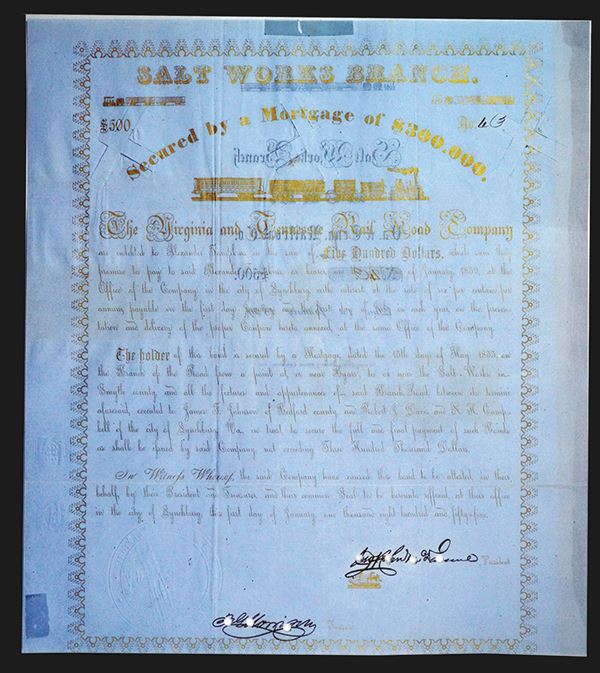 SALT WORKS BRANCH.
Secured by a Mortgage of $300.000.
£500, No
The Virginia and Tennessee Rail Road Company
are indebted to Alexander in the sum of Five Hundred Dollars, which sum they
promise to pay to said Alexander or bearer of January 1859, at the
Office of the Company in the city of Lynchburg with interest at the rate of six per centum per
annum payable on the first day of in each year on the presen-
tation and delivery of the proper Coupon hereto annexed at the same Office of the Company.
The holder of this bond is secured by a Mortgage, dated the 15th day of May 1853, on
the Branch of the Road from a point at or near to at or near the Salt-Works in
Smythe county, and all the fixtures and appurtenances of said Branch Road, between the termini
aforesaid, executed to James F. Johnson of Bedford county and Robert J. Davis and Camp-
bell of the city of Lynchburg, Va. in trust to secure the full and final payment of such Bonds
as shall be issued by said Company not exceeding Three Hundred Thousand Dollars.
In Witness Whereof, the said Company have caused this bond to be attested, in their
behalf, by their President and Treasurer and their common Seal to be hereunto affixed, at their office
in the city of Lynchburg, this first day of January, one thousand eight hundred and fifty-five.
President